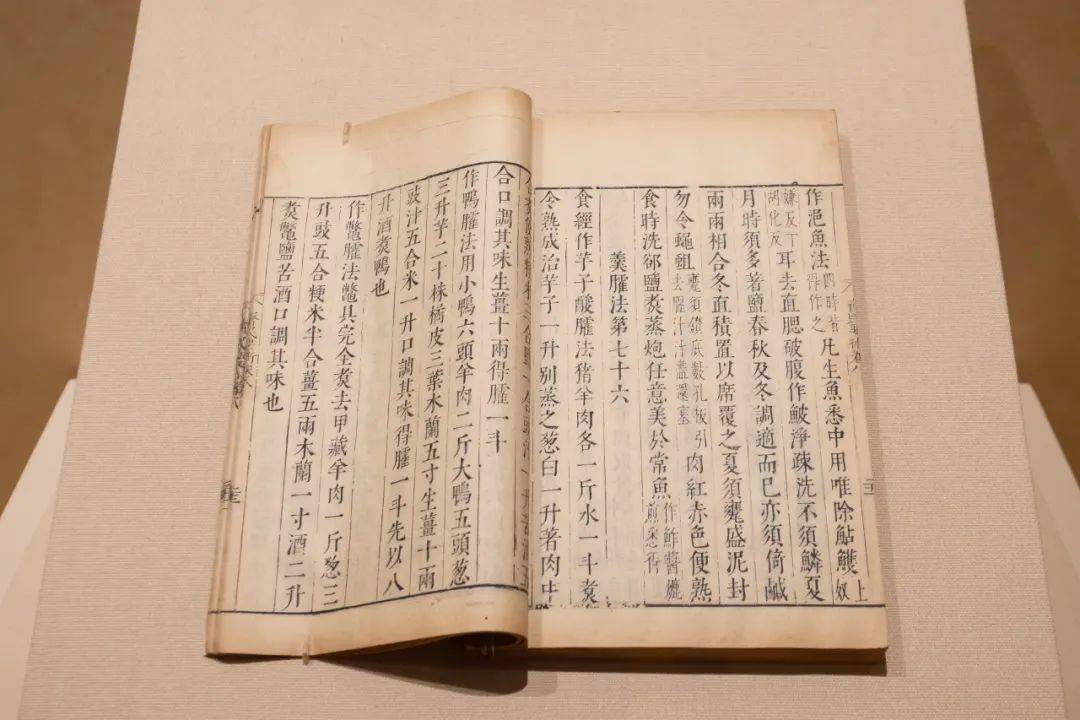 作浥魚法四時皆得作之凡生魚悉中用唯除鮎鱯上奴
嫌反下胡化反耳去直腮破腹作鮍淨疎洗不須鱗夏
月時須多著鹽春秋及冬調適而已亦須倚鹹
兩兩相合冬直積置以席覆之夏須甕盛泥封
勿令蠅蛆甕須鑽底數孔板引去腥汁汁盡還塞肉紅赤色便熟
食時洗卻鹽煑蒸炮任意美於常魚作鮓醬爊煎悉得
羹臛法第七十六
食經作芋子酸臛法猪羊肉各一斤水一斗煑
令熟成治芋子一升别蒸之葱白一升著肉中
合口調其味生薑十兩得臛一斗
作鴨臛法用小鴨六頭羊肉二斤大鴨五頭葱
三升芋二十株橘皮三葉木蘭五寸生薑十兩
豉汁五合米一升口調其味得臛一斗先以八
升酒煑鴨也
作鼈臛法鼈且完全煑去甲藏羊肉一斤葱三
升豉五合粳米半合薑五兩木蘭一寸酒二升
煑鼈鹽苦酒口調其味也